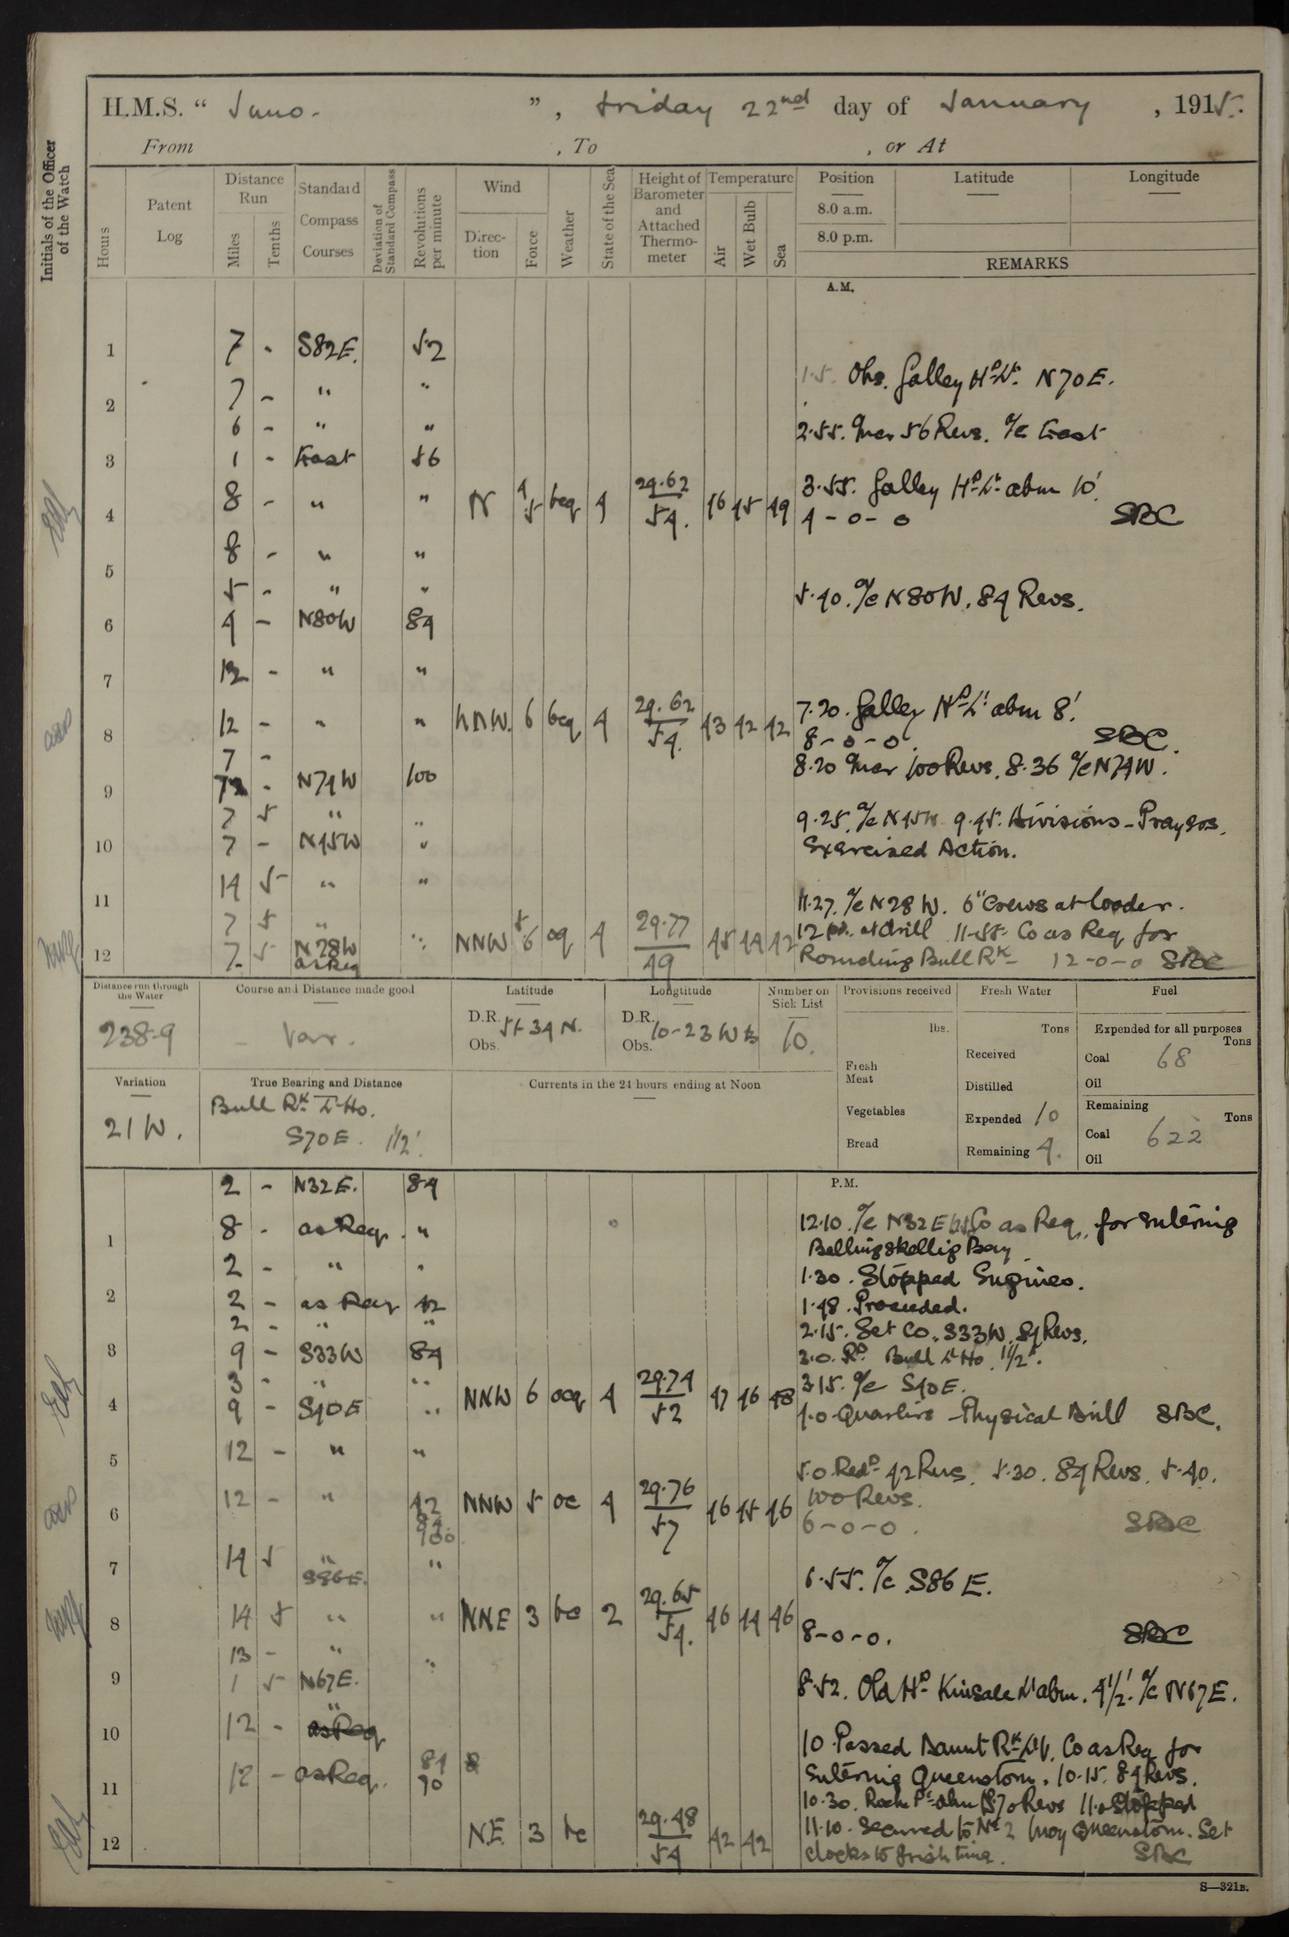 H.M.S. " Juno. ", Friday 22nd day of January, 1915.
From , To , or At
Initials of the Officer of the Watch
Hours
Patent Log
Distance Run
Miles
Tenths
Standard Compass Courses
Deviation of Standard Compass
Revolutions per minute
Wind
Direction
Force
Weather
State of the Sea
Height of Barometer and Attached Thermometer
Temperature
Air
Wet Bulb
Sea
Position Latitude Longitude
8.0 a.m.
8.0 p.m.
REMARKS
A.M.
1 7 - S82E. 52
1.5. Obs. Galley Hd Lt. N70E.
2 7 - " "
6 - " "
2.55. Incr 56 Revs. a/c East
3 1 - East 56
3.55. Galley Hd Lt abm 10'.
4 8 - " " N 4/5 bcq 4 29.62/54. 46 45 49
4-0-0 SBC
5 8 - " "
5 - " "
5.40. a/c N80W. 84 Revs.
6 4 - N80W 84
7 12 - " "
7.20. Galley Hd Lt abm 8'.
8 12 - " " NNW. 6 bcq 4 29.62/54. 43 42 42
8-0-0. SBC.
7 -
8.20 Incr 100 Revs. 8.36 a/c N74W.
9 - N74W 100
7 5 " "
9.25. a/c N45W 9.45. Divisions - Prayers.
10 7 - N45W "
Exercised Action.
11 14 5 " "
11.27. a/c N28W. 6" Crews at loader.
7 5 "
12 pdr. at drill 11-55. Co as Req for
12 7 5 N28W as Req " NNW 5/6 oq 4 29.77/49 45 44 42
Rounding Bull Rk 12-0-0 SBC
Distance run through the Water
238.9
Course and Distance made good
Var.
Latitude
D.R. 51-34 N.
Obs.
Longtitude
D.R. 10-23 W
Obs.
Number on Sick List
10.
Provisions received
lbs.
Fresh Meat
Vegetables
Bread
Fresh Water
Tons
Received
Distilled
Expended 10
Remaining 4.
Fuel
Expended for all purposes
Tons
Coal 68
Oil
Remaining
Tons
Coal 622
Oil
Variation
21 W.
True Bearing and Distance
Bull Rk Lt Ho.
S70E. 1½'
Currents in the 24 hours ending at Noon
P.M.
2 - N32E. 84
12.10. a/c N32E Co as Req. for Entering
1 8 - as Req. "
Ballingskellig Bay
2 - " "
1.30. Stopped Engines.
2 2 - as Req 42
1.48. Proceeded.
2 - " "
2.15. Set Co. S33W. 84 Revs.
3 9 - S33W 84
3.0. Rd Bull Lt Ho. 1½'.
3 - " "
3.15. a/c S40E.
4 9 - S40E " NNW 6 ocq 4 29.74/52 47 46 48
4.0 Quarters - Physical Drill SBC.
5 12 - " "
5.0 Redd 42 Revs. 5.30. 84 Revs. 5.40.
6 12 - " 42 84 100. NNW 5 oc 4 29.76/57 46 45 46
100 Revs.
6-0-0. SBC
7 14 5 " "
S86E.
6.55. a/c S86E.
8 14 5 " " NNE 3 bc 2 29.65/54. 46 44 46
8-0-0. SBC
13 - " "
9 1 5 N67E.
8.52. Old Hd Kinsale Lt abm. 4½'. a/c N67E.
10 12 - " as Req
10 Passed Daunt Rk Lt V. Co as Req for
11 12 - as Req. 84 70
Entering Queenstown. 10.15. 84 Revs.
10.30. Roche Pt abm 70 Revs 11.0 Stopped
12 NE. 3 bc 29.48/54 42 42
11.10. Secured to No 2 buoy Queenstown. Set
clocks to Irish time. SBC
S—321B.